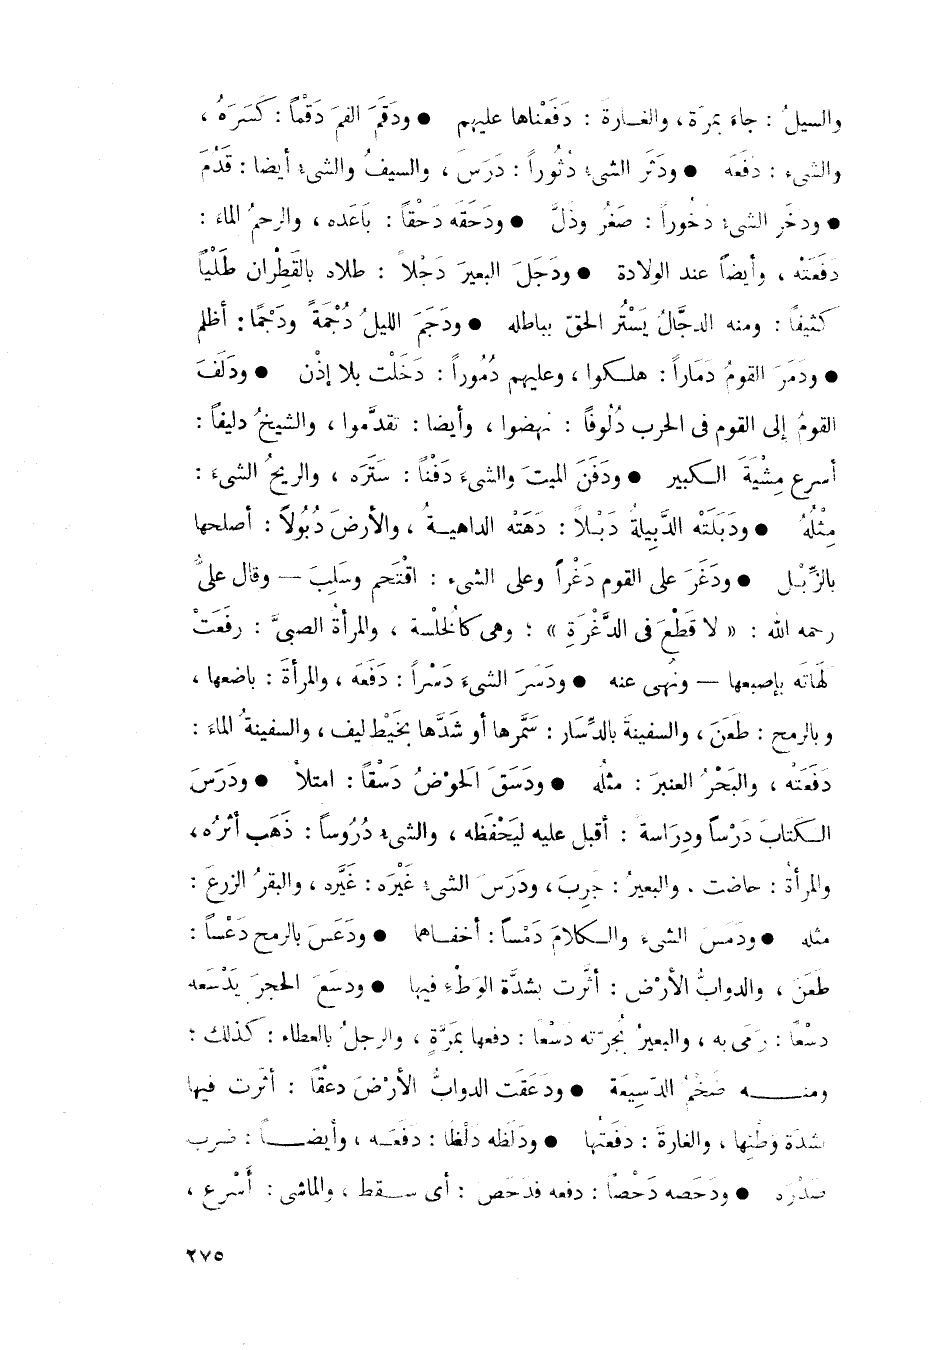 والسيلُ : جاءَ بمرّة ، والغارةَ : دَفَعْناها عليهم ● ودَقَمَ الفمَ دَقْماً : كَسَرَهُ ،
والشىء : دفَعَه ● ودَثَر الشىء دُثُوراً : دَرَسَ ، والسيفُ والشىء أيضا : قَدُمَ
● ودخَر الشىء دُخُوراً : صَغُر وذَلَّ ● ودَحَقَه دَحْقاً : بَاعَده ، والرحمُ الماءَ :
دَفَعَتْه ، وأيضاً عند الولادة ● ودَجَلَ البعيرَ دَجْلاً : طلاه بالقَطِران طَلْيًا
كثيفًا : ومنه الدجَّالُ يَسْتُر الحقّ بباطله ● ودَجَمَ الليلُ دُجْمَةً ودَجْمًا : أظلم
● ودَمَرَ القومُ دَمَاراً : هلكوا ، وعليهم دُمُوراً : دَخَلْت بلا إذْن ● ودَلَفَ
القومُ إلى القوم فى الحرب دُلُوفاً : نهضوا ، وأيضا : تقدَّموا ، والشيخُ دليفاً :
أسرع مِشْيَةَ الكبير ● ودَفَنَ الميتَ والشىءَ دَفْناً : سَتَرَه ، والريحُ الشىءَ :
مِثْلُهُ ● ودَبَلَتْه الدَّبِيلةُ دَبْلاً : دَهَتْه الداهيةُ ، والأرضَ دُبُولاً : أصلحها
بالزِّبْل ● ودَغَرَ على القوم دَغْراً وعلى الشىء : اقْتَحم وسَلِبَ — وقال علىٌّ
رحمه الله : « لا قَطْعَ فى الدَّغْرَةِ » : وهى كالْخلْسة ، والمرأةُ الصبىَّ : رفَعَتْ
لَهَاتَه بإصبعها — ونُهى عنه ● ودَسَرَ الشىءَ دَسْراً : دَفَعَه ، والمرأةَ : باضعها ،
وبالرمح : طعَنَ ، والسفينةَ بالدِّسَار : سَمَّرها أو شَدَّها بخَيْط ليف ، والسفينةُ الماءَ :
دَفَعَتْه ، والبَحْرُ العنبرَ : مثلُه ● ودَسَقَ الَحوْضُ دَسْقاً : امتلأ ● ودَرَسَ
الكتابَ دَرْساً ودِرَاسة : أقبل عليه ليَحْفَظه ، والشىء دُرُوساً : ذَهَب أثرُه ،
والمرأةُ : حاضت . والبعيرُ : جَرِبَ ، ودَرَسَ الشىء غَيْرَه : غَيَّره ، والبقرُ الزرعَ :
مثله ● ودَمَسَ الشىءَ والكلامَ دَمْساً : أخفاها ● ودَعَسَ بالرمح دَعْساً :
طَعَنَ ، والدوابُّ الأرْضَ : أثَّرت بشدَّة الوَطْءِ فيها ● ودسَعَ الحجرَ يَدْسَعه
دسْعًا : رَمَى به ، والبعيرُ بُجرّته دسْعًا : دفعها بمَرَّةٍ ، والرجلُ بالعطاء : كذلك :
ومنه ضَخْمُ الدّسِيعَة ● ودَعَقَت الدوابُّ الأرْضَ دعْقًا : أثّرت فيها
بشدَة وَطْئِها ، والغارةَ : دفعَتْها ● ودَلَظه دلْظًا : دفَعَه ، وأيضاً : ضرب
صَدْرَه ● ودَحَصه دَحْصًا : دفعه فدَحَص : أى سقط ، والماشى : أَسْرع ،
٢٧٥